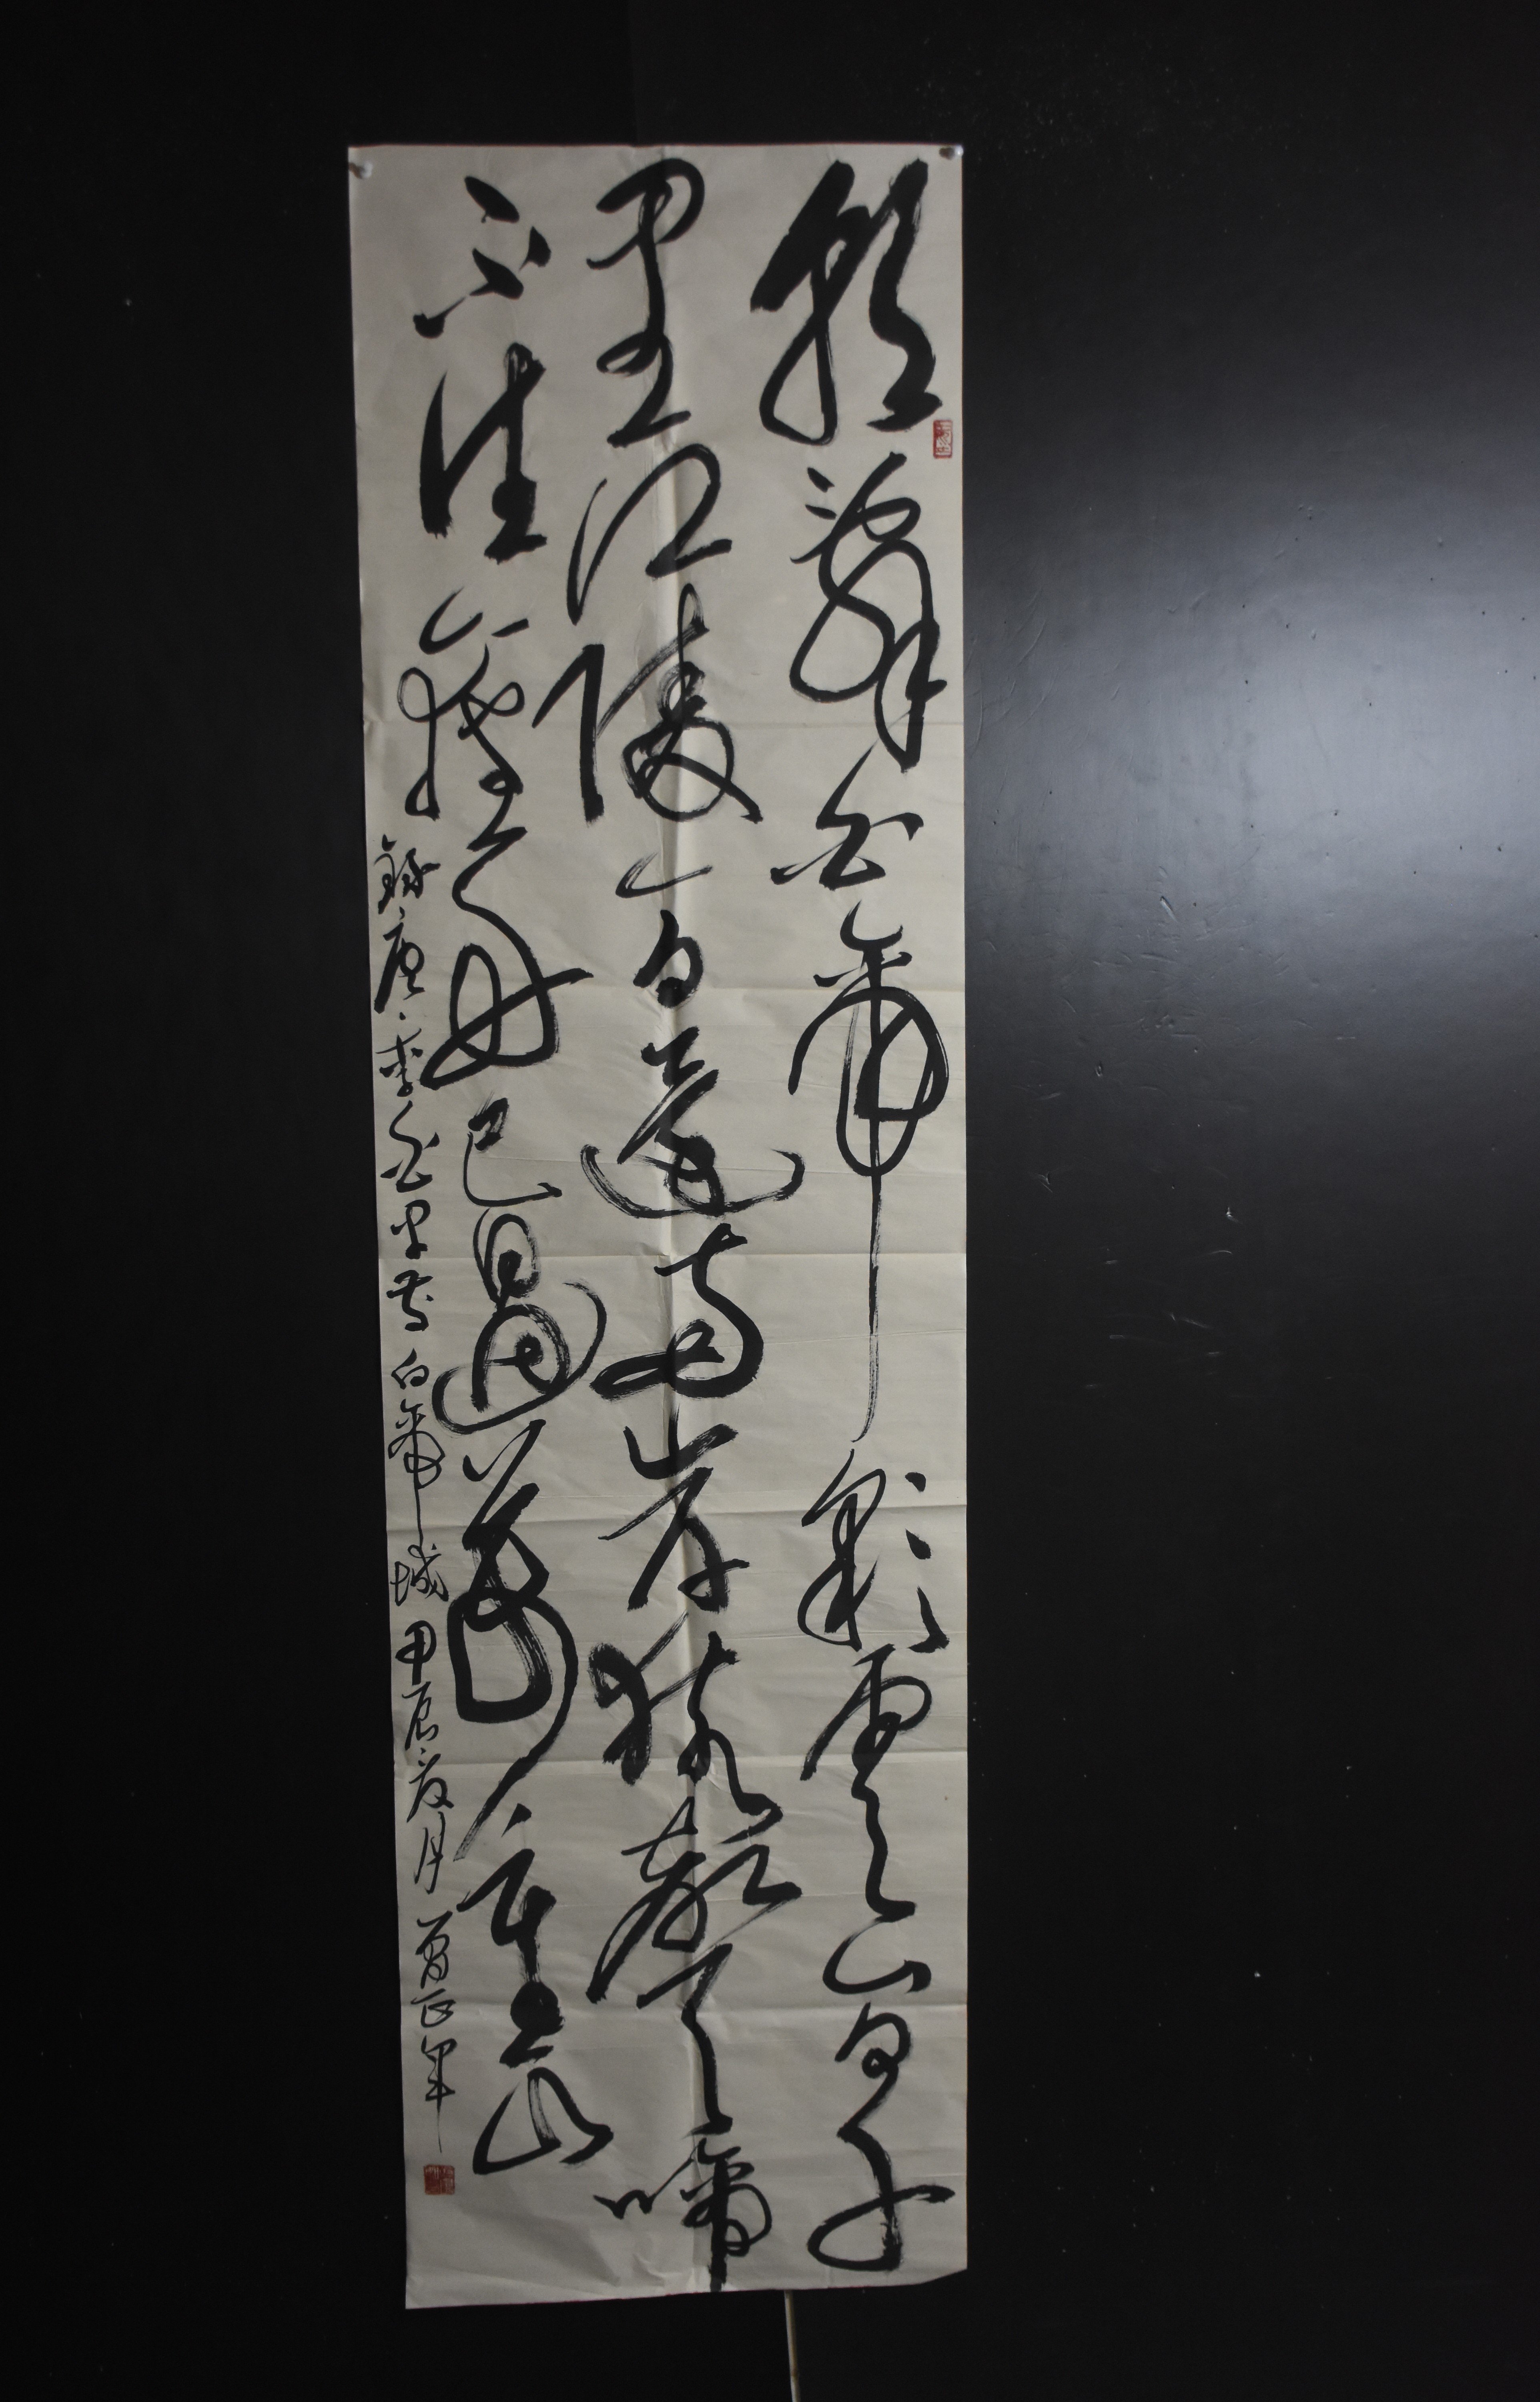 朝辭白帝彩雲間千
里江陵一日還兩岸猿聲啼
不住輕舟已過萬重山
錄唐·李白早發白帝城 甲辰夏月